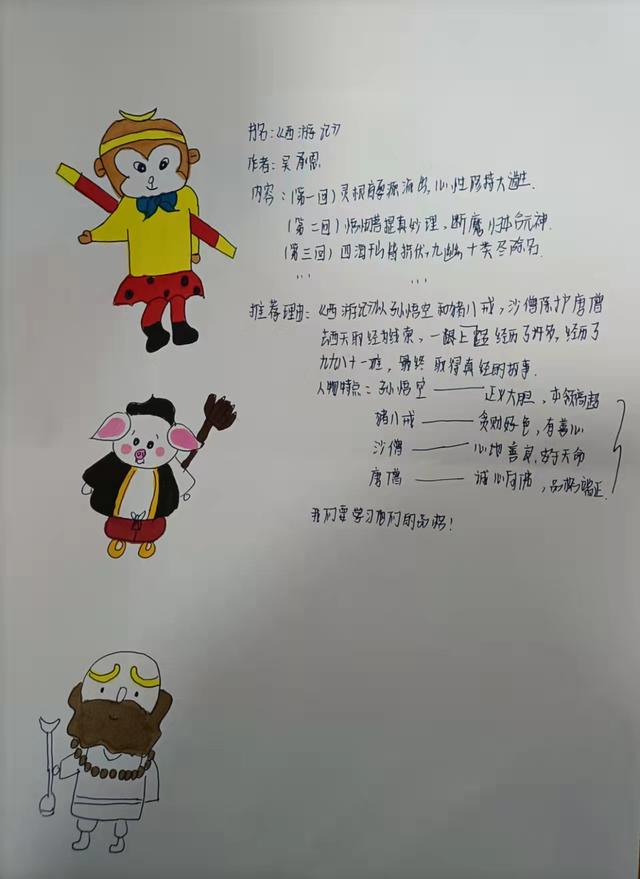 书名:《西游记》
作者:吴承恩
内容:(第一回)灵根育孕源流出,心性修持大道生.
(第二回)悟彻菩提真妙理,断魔归本合元神.
(第三回)四海千山皆拱伏,九幽十类尽除名.
… …
推荐理由:《西游记》从孙悟空和猪八戒,沙僧保护唐僧
去西天取经为线索,一路上经历了许多,经历了
九九八十一难,最终取得真经的故事.
人物特点:孙悟空——正义大胆,本领高超
猪八戒——贪财好色,有善心
沙僧——心地善良,安于天命
唐僧——诚心向佛,品格端正.
我们要学习他们的品格!